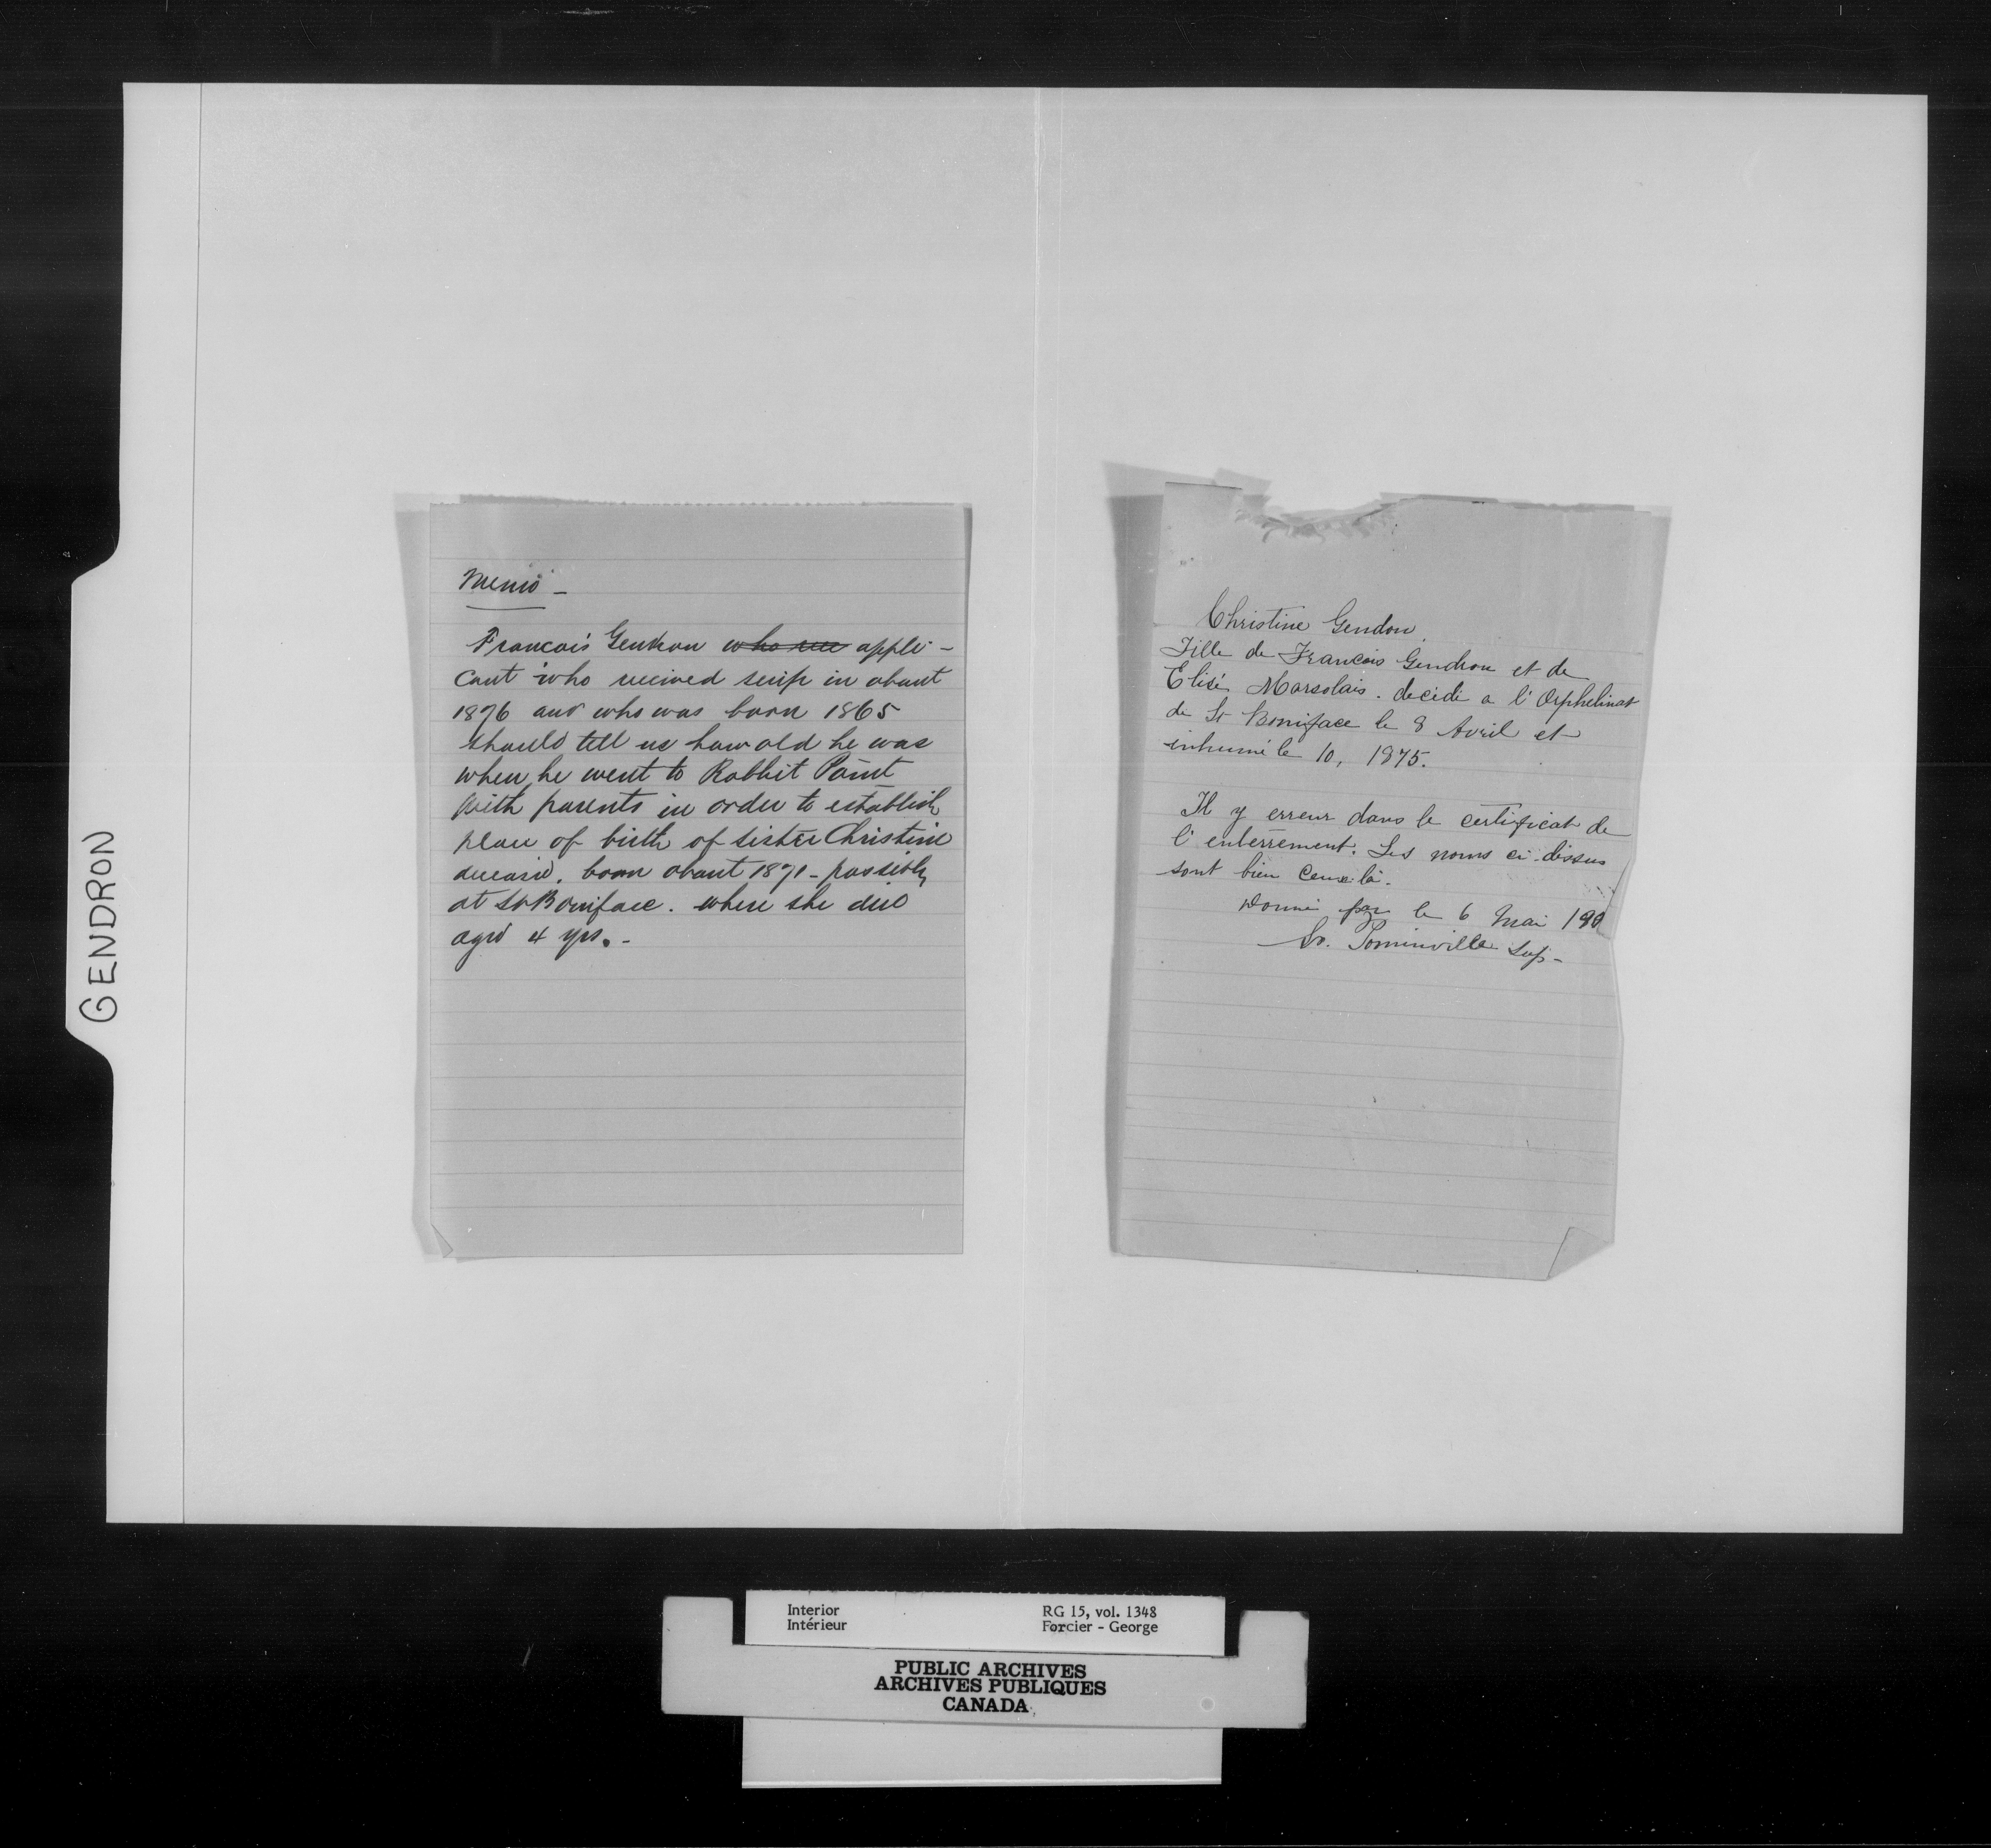 GENDRON
Memo -
Francois Gendron who rec appli-
cant who recieved scrip in about
1876 and who was born 1865
should tell us how old he was
when he went to Rabbit Point
with parents in order to establish
place of birth of sister Christine
deceasd. born about 1871 - possibly
at St Boniface. where she died
aged 4 yrs. -
Christine Gendon,
Fille de Francois Gendron et de
Elisé Marsolais. decidé a l'Orphelinat
de St Boniface le 8 Avril et
inhumé le 10, 1875.
Il y erreur dans le certificat de
l'enterrement. Les noms ci-dissus
sont bien ceux-là.
Donné par le 6 Mai 190
Sr. Pominville Sup-
Interior
Intérieur
RG 15, vol. 1348
Forcier - George
PUBLIC ARCHIVES
ARCHIVES PUBLIQUES
CANADA